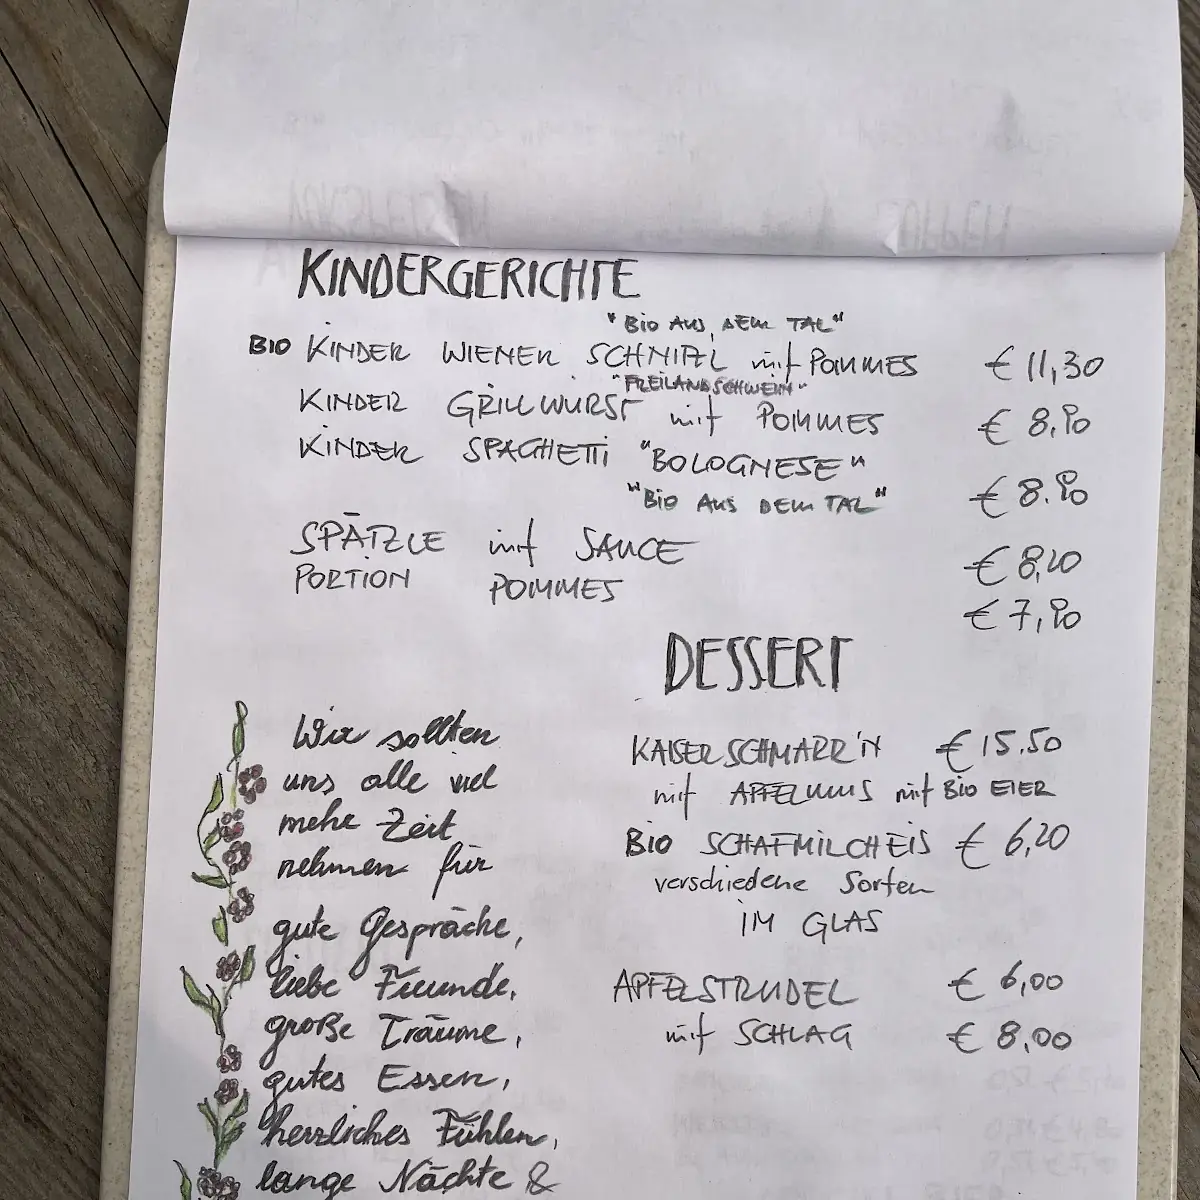 KINDERGERICHTE
"BIO AUS DEM TAL"
BIO KINDER WIENER SCHNITZL mit POMMES € 11,30
"FREILANDSCHWEIN"
KINDER GRILLWURST mit POMMES € 8,90
KINDER SPAGHETTI "BOLOGNESE"
"BIO AUS DEM TAL" € 8.90
SPÄTZLE mit SAUCE € 8,20
PORTION POMMES € 7,90
DESSERT
KAISERSCHMARR'N € 15.50
mit APFELMUS mit BIO EIER
BIO SCHAFMILCHEIS € 6,20
verschiedene Sorten
IM GLAS
APFELSTRUDEL € 6,00
mit SCHLAG € 8,00
Wir sollten
uns alle viel
mehr Zeit
nehmen für
gute Gespräche,
liebe Freunde,
große Träume,
gutes Essen,
herzliches Fühlen,
lange Nächte &